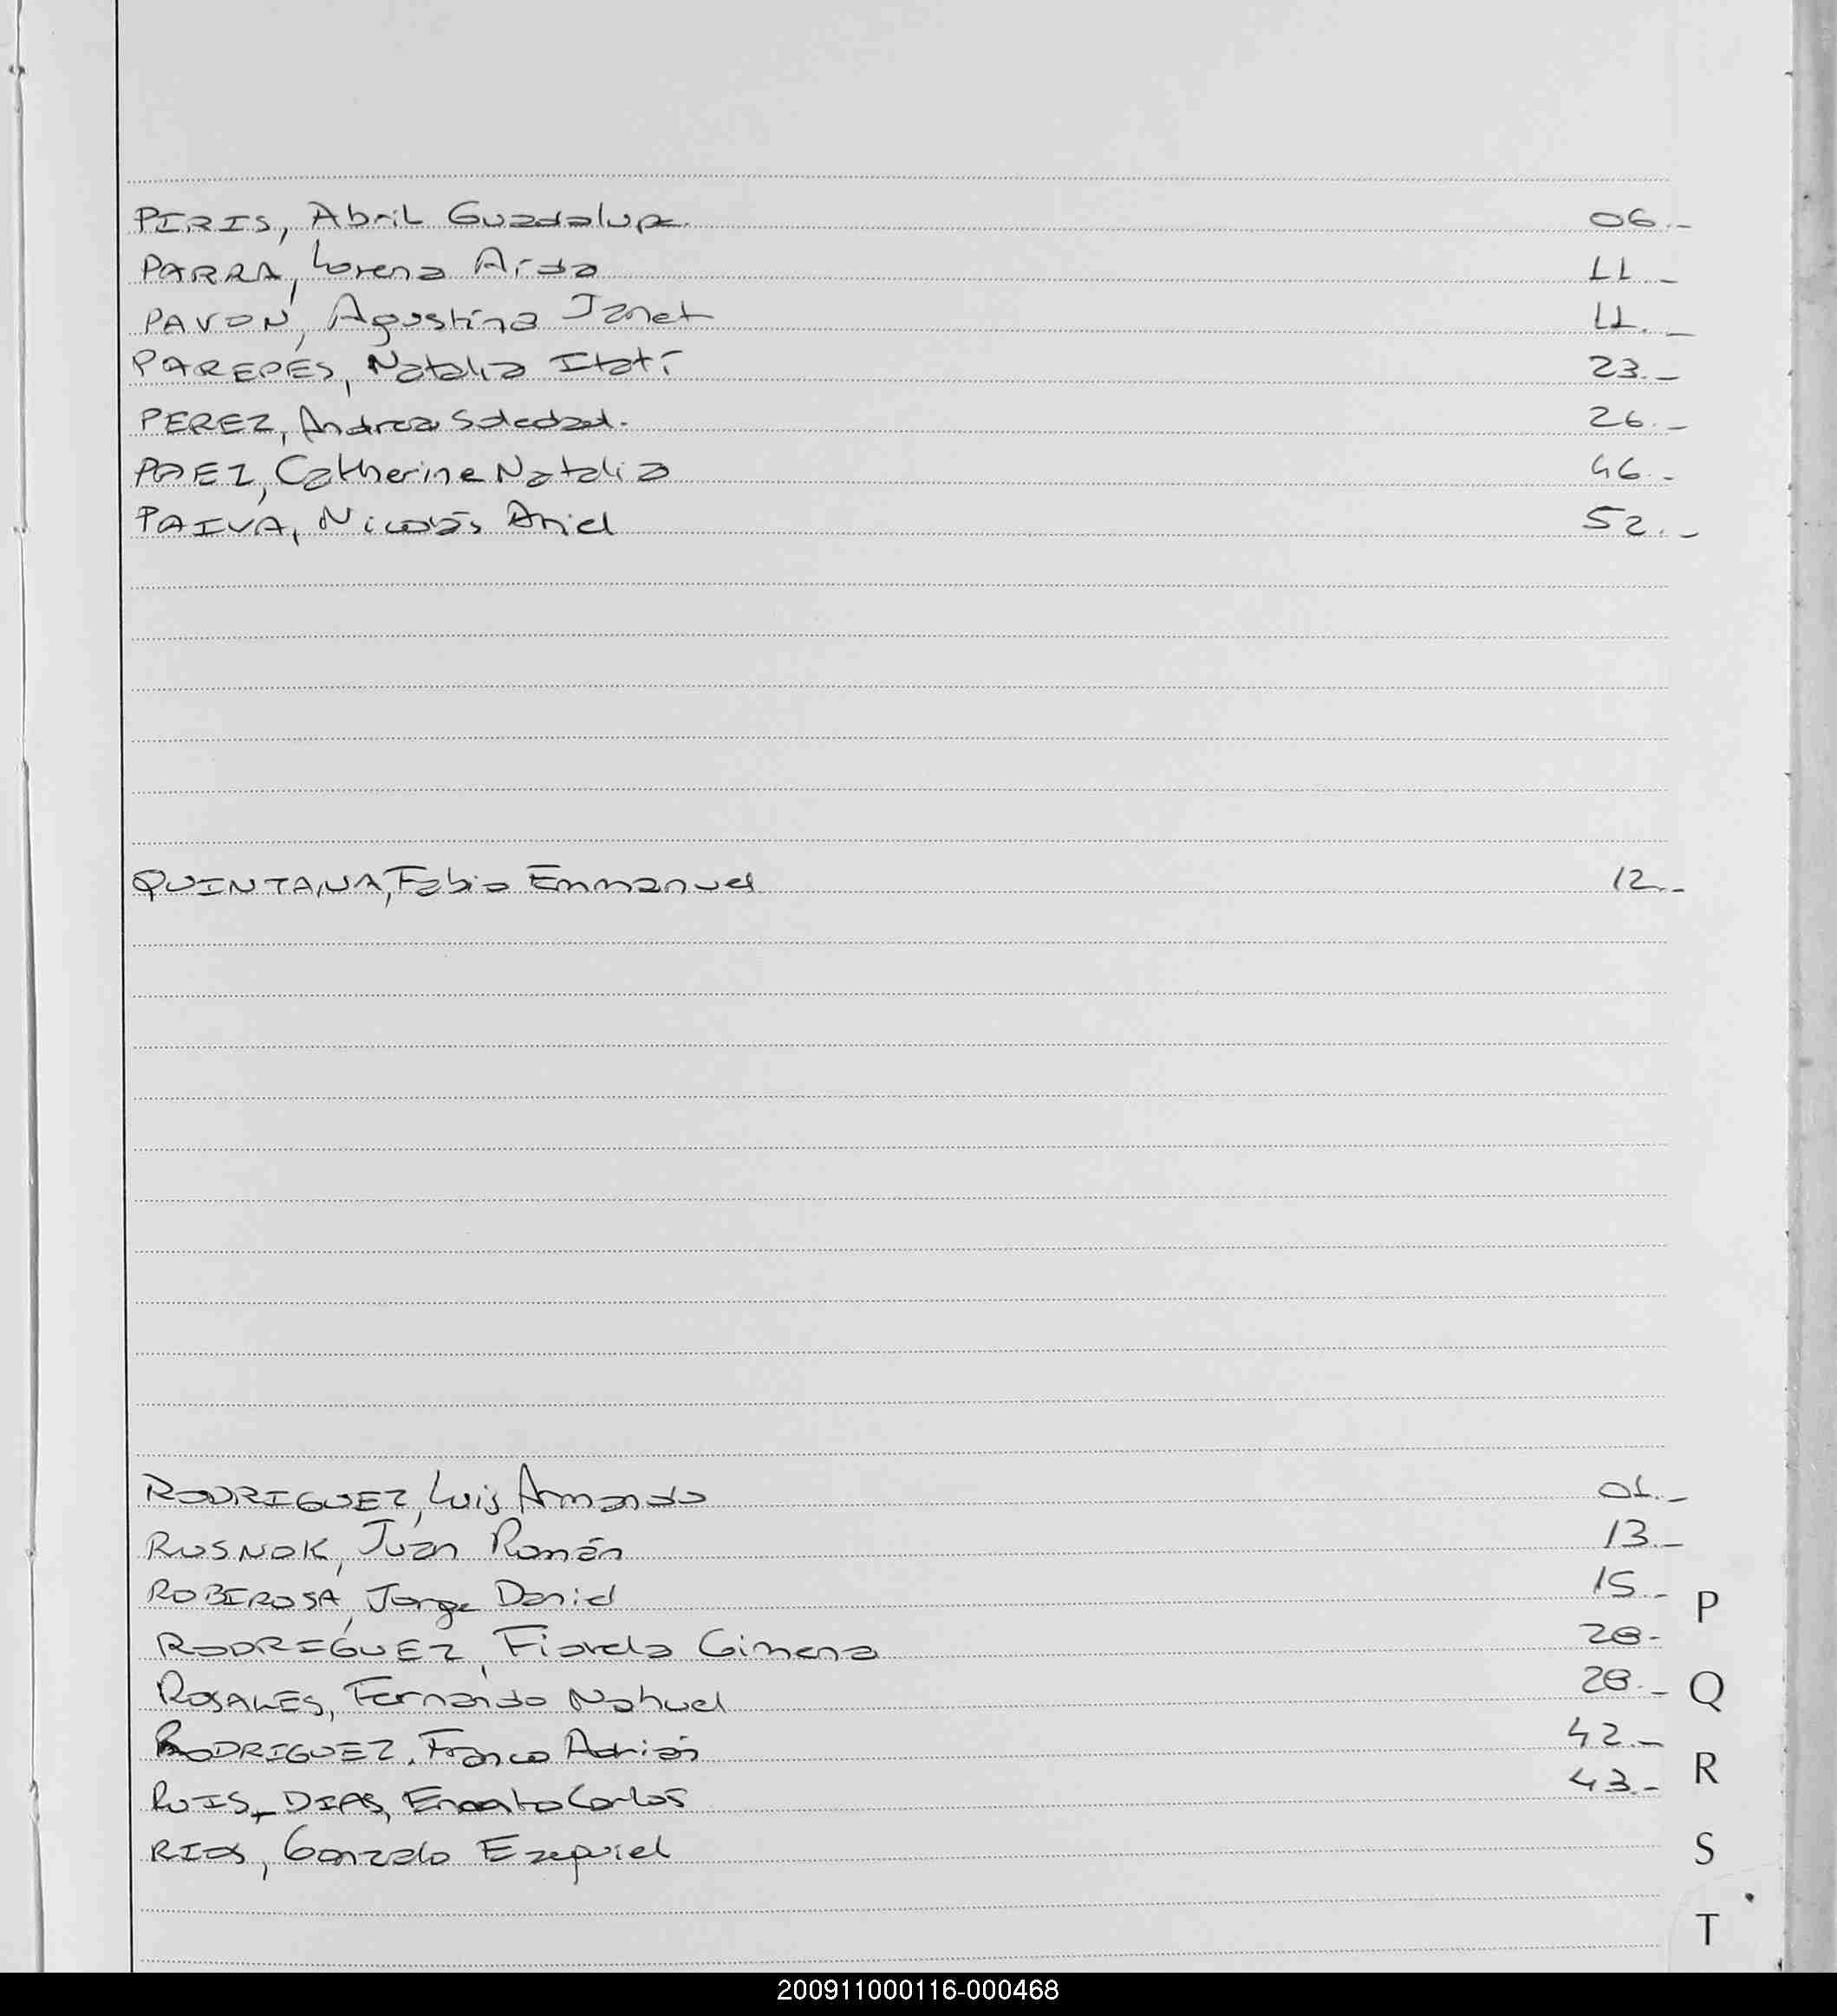 PIRIS, Abril Guadalupe. 06.-
PARRA, Lorena Aída 11.-
PAVON, Agustina Janet 11.-
PAREDES, Natalia Itatí 23.-
PEREZ, Andrea Soledad. 26.-
PAEZ, Catherine Natalia 46.-
PAIVA, Nicolás Ariel 52.-
QUINTANA, Fabio Emmanuel 12.-
RODRIGUEZ, Luis Armando 01.-
RUSNOK, Juan Román 13.-
ROBIROSA, Jorge Daniel 15.-
RODRIGUEZ, Fiorela Gimena 28.-
ROSALES, Fernando Nahuel 28.-
RODRIGUEZ, Franco Adrián 42.-
RUIS-DIAS, Ernesto Carlos 43.-
RIOS, Gonzalo Ezequiel
P
Q
R
S
T
200911000116-000468